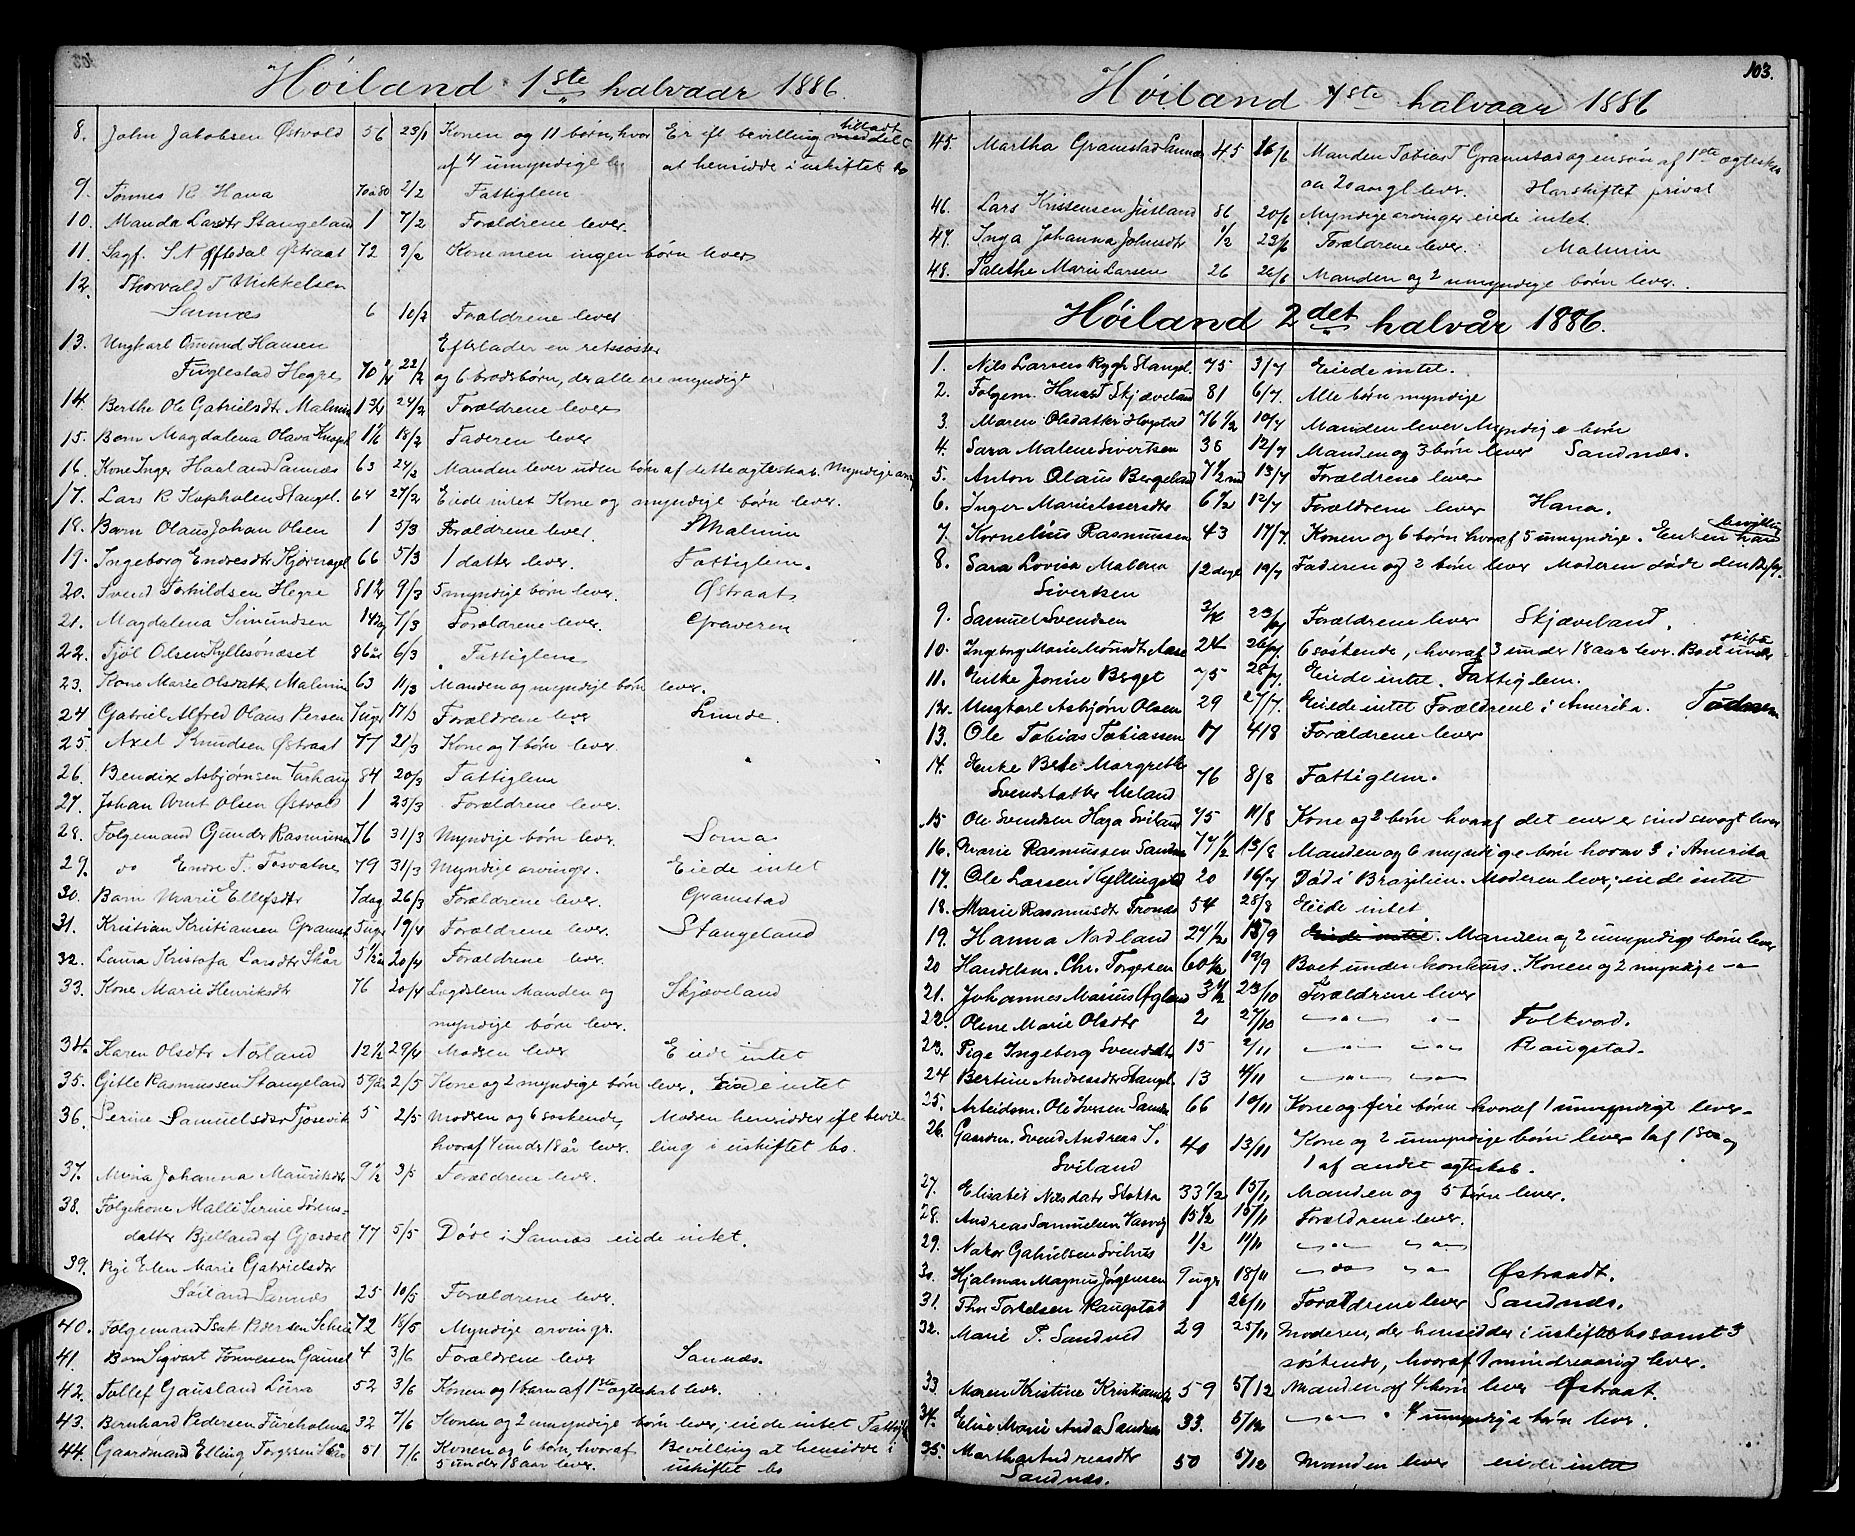 Høiland 1ste halvaar 1886.
8. John Jakobsen Østvold 56 23/1 Konen og 11 børn, hvor Er eft bevilling tilladt
af 4 umyndige at hensidde i uskiftet bo
9. Tønnes R Hana 70 a 80 2/2 Fattiglem
10. Manda Larsdtr Stangeland 1 7/2 Forældrene lever.
11. Sagf. S N Øftedal Østraat 72 9/2 Konen men ingen børn lever
12. Thorvald T Mikkelsen
Sannæs 6 10/2 Forældrene lever
13. Ungkarl Omund Hansen Efterlader en retsøster
Fuglestad Hegre 70 22/2 og 6 brodsbørn, der alle ere myndige
14. Berthe Ole Gabrielsdtr Malmin 1 3/4 24/2 Forældrene lever
15. Barn Magdalena Olava 1 1/6 18/2 Faderen lever
16. Kone Inger Haaland Sannæs 63 24/2 Manden lever uden børn af dette ægteskab. Myndige arv
17. Lars R Kopholen Stangel. 64 27/2 Eiede intet Kone og myndige børn lever.
18. Barn Olaus Johan Olsen 1 5/3 Forældrene lever. Malmin
19. Ingeborg Endresdtr 66 5/3 1 datter lever. Fattiglem.
20. Svend Torkildsen Hegre 81 1/2 9/3 5 myndige børn lever. Østraat
21. Magdalena Simundsen 14 dag 7/3 Forældrene lever. Graveren
22. Tjøl Olsen Kyllesønæset 86 år 6/3 Fattiglem
23. Kone Marie Olsdatter Malmin 63 11/3 Manden og myndige børn lever.
24 Gabriel Alfred Olaus Persen 7 uger 17/3 Forældrene lever Lunde.
25. Axel Knudsen Østraat 77 21/3 Kone og 7 børn lever.
26. Bendix Asbjørnsen Varhaug 84 20/3 Fattiglem
27. Johan Arnt Olsen Østvold 1 25/3 Forældrene lever.
28. Folgemand Gunder Rasmussen 76 31/3 Myndige børn lever. Soma
29. do Endre T. Fosvatne 79 31/3 Myndige arvinger. Eiede intet
30. Barn Marie Ellefsdtr 1 dag 26/3 Forældrene lever. Gramstad
31. Kristian Kristiansen Gramst 5 uger 19/4 Forældrene lever. Stangeland
32. Laura Kristofa Larsdtr Skår 5 1/2 år 20/4 Forældrene lever.
33. Kone Marie Henriksdtr 76 20/4 Lægdslem Manden og Skjæveland
myndige børn lever.
34. Karen Olsdtr Norland 12 1/2 29/4 Modren lever Eiede intet
35. Gitle Rasmussen Stangeland 59 år 2/5 Kone og 2 myndige børn lever. Eiede intet
36. Serine Samuelsdtr Tjosevik 5 2/5 Modren og 6 søskende, Modren hensidder ifl bevil
hvoraf 4 under 18 år lever. ling i uskiftet bo.
37. Mina Johanna Mauritsdtr 9 1/2 3/5 Forældrene lever.
38. Folgekone Malli Serine Sørens-
datter Bjelland af Gjesdal 77 5/5 Døde i Sannæs eiede intet.
39. Pige Elen Marie Gabrielsdtr
Søiland Sannæs 25 10/5 Forældrene lever.
40. Folgemand Isak Pedersen 72 18/5 Myndige arvingr.
41. Barn Sigvart Tønnessen Gausel 4 3/6 Forældrene lever Sannæs.
42. Tollef Gausland Lura 52 3/6 Konen og 1 barn af 1ste ægteskab lever.
43. Bernhard Pedersen Fureholman 32 7/6 Konen og 2 umyndige børn lever; eiede intet
44. Gaardmand Elling Torgersen Skår 51 7/6 Konen og 6 børn, hvoraf Bevilling at hensidde i
5 under 18 aar lever. uskiftet bo
103.
Høiland 1ste halvaar 1886
45. Martha Gramstad Sannæs 45 16/6 Manden Tobias T Gramstad og en søn af 1ste ægteskab
20 aar gl lever. Har skiftet privat
46. Lars Kristensen Jutland 86 20/6 Myndige arvinger eiede intet.
47. Inga Johanna Johnsdtr 1/2 23/6 Forældrene lever. Malmin
48. Talethe Marie Larsen 26 26/6 Manden og 2 umyndige børn lever.
Høiland 2det halvår 1886.
1. Nils Larsen Rygh Stangel. 75 3/7 Eiede intet.
2. Folgem. Hans T Skjæveland 81 6/7. Alle børn myndige
3. Maren Olsdatter Høystad 76 1/2 10/7 Manden lever Myndige børn
4. Sara Malene Sivertsen 38 12/7 Manden og 3 børn lever Sandnæs.
5. Anton Olaus Bergeland 7 1/2 md 13/7 Forældrene lever
6. Inger Marie 6 1/2 12/7 Forældrene lever Hana.
7. Kornelius Rasmussen 43 17/7 Konen og 6 børn hvoraf 5 umyndige. Enken har bevilling
8. Sara Lovisa Malena 12 dage 19/7 Faderen og 2 børn lever Moderen døde den
Sivertsen
9. Samuel Svendsen 3/4 23/7 Forældrene lever Skjæveland.
10. Ingeborg Marie 24 26/7 6 søskende, hvoraf 3 under 18 aar lever. Boet under skifte
11. Enke Jorine Berget 75 28/7. Eiede intet. Fattiglem.
12. Ungkarl Asbjørn Olsen 29 27/7. Eiede intet Forældrene i Amerika.
13. Ole Tobias Tobiassen 17 4/8 Forældrene lever
14. Enke Bete Margrethe
Svendsdatter Meland 76 8/8 Fattiglem.
15 Ole Svendsen Haga Sviland 75 11/8 Kone og 2 børn hvoraf det ener er sindssvagt lever
16. Marie Rasmussen Sandn 77 1/2 13/8 Manden og 6 myndige børn hvorav 3 i Amerika
17. Ole Larsen Kyllingst 20 16/7 Død i Brazilien. Moderen lever; eiede intet
18. Marie Rasmusdt 54 28/8 Eiede intet
19. Hanna Nordland 24 1/2 13/9 Eiede intet. Manden og 2 umyndige børn lever
20 Handelsm. Chr. Torgersen 60 1/2 19/9 Boet under konkurs. Konen og 2 myndige –"–
21. Johannes Marius Øgland 3 1/2 23/10 Forældrene lever
22. Oline Marie Olsdtr 2 27/10 –"– –"– Folkvod.
23. Pige Ingeborg Svendsdtr 15 2/11 –"– –"– Raugstad.
24 Bertine Andreasdtr Stangel. 13 4/11 –"– –"–
25. Arbeidsm. Ole Iversen Sandn 66 10/11 Kone og fire børn hvoraf 1 umyndigt lever.
26. Gaardm. Svend Andreas S. Kone og 2 umyndige børn lever 1 af 1ste og
Sviland 40 13/11 1 af andet ægteskab.
27. Elisabet Nilsdatr Stokka 33 1/2 15/11 Manden og 5 børn lever.
28. Andreas Samuelsen 15 1/2 15/11 Forældrene lever.
29. Nakor Gabrielsen 1/2 11/11 –"– –"–
30. Hjalmar Magnus Jørgensen 9 uger 18/11 –"– –"– Østraadt.
31. Thor Torkelsen Raugstad 1 26/11 Forældrene lever Sandnæs.
32. Marie P. Sandved 29 25/11 Moderen, der hensidder i uskiftet bo samt 3
søskende, hvoraf 1 mindreaarig lever.
33. Maren Kristine 59 5/12 Manden af 4 børn lever Østraat.
34. Elise Marie Anda Sandnæs 33. 5/12 –"– 4 umyndige børn lever.
35. Martha Andreasdtr
Sandnæs. 50 5/12 Manden lever eiede intet